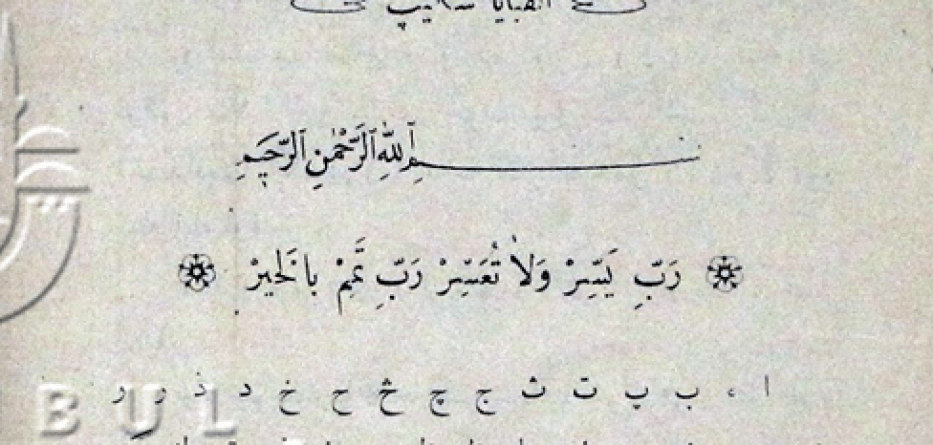 الفبايا
بِسْمِ ٱللهِ ٱلرَّحْمٰنِ ٱلرَّحِيمِ
رَبِّ يَسِّرْ وَلَا تُعَسِّرْ رَبِّ تَمِّمْ بِالْخَيْرْ
ا ، ب پ ت ث ج چ څ ح خ د ذ ر
BUL